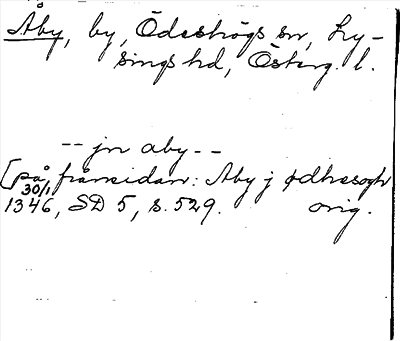 Åby, by, Ödeshögs sn, Ly-
sings hd, Österg. l.
-- jn aby --
[på framsidan: Aby j ødhesogh
30/1
1346, SD 5, s. 529. orig.